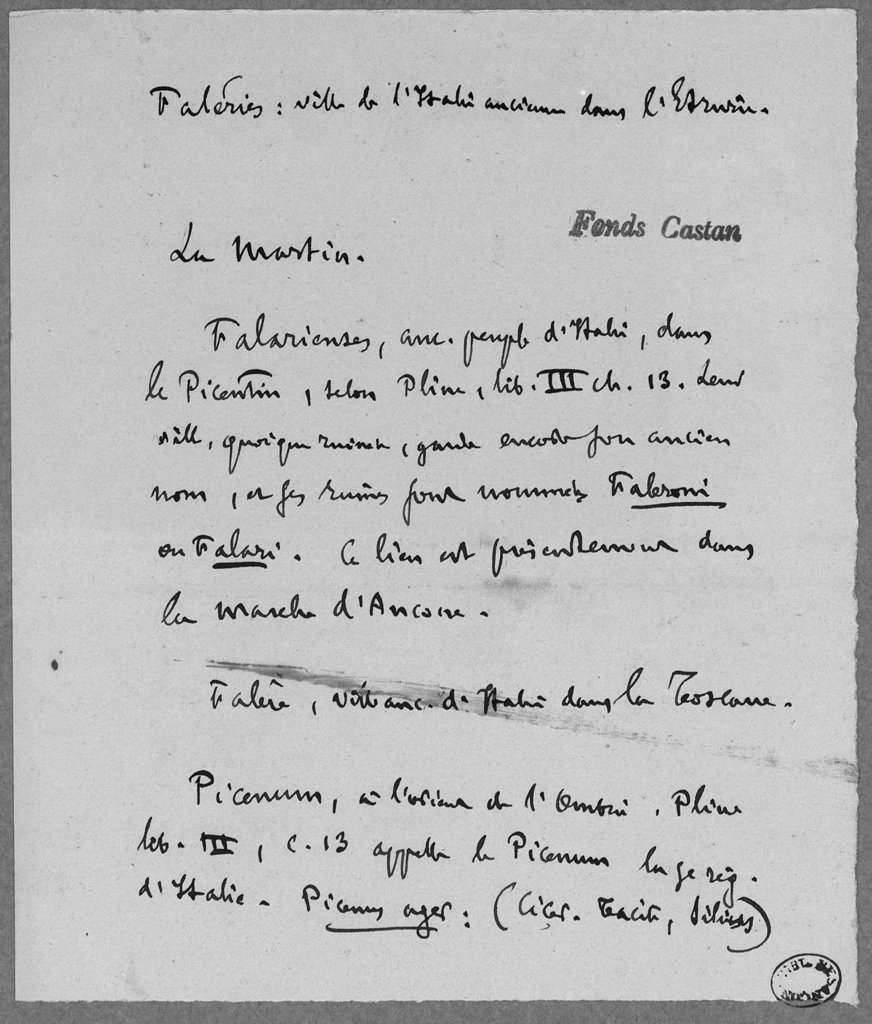 Faléries : ville de l'Italie ancienne dans l'Etrurie.
Fonds Castan
La Martin.
Falarienses, anc. peuple d'Italie, dans
le Picentin, selon Pline, lib. III ch. 13. Leur
ville, quoique ruinée, garde encore son ancien
nom, et ses ruines sont nommées Faleroni
ou Falari. Ce lieu est présentement dans
la marche d'Ancone.
Falère, ville anc. d'Italie dans la Toscane.
Picenum, à l'orient de l'Ombrie. Pline
lib. III, c. 13 appelle le Picenum la 5e rég.
d'Italie. Picenus ager : (Cicer. Tacite, Silius)
BIBL. BESANÇON